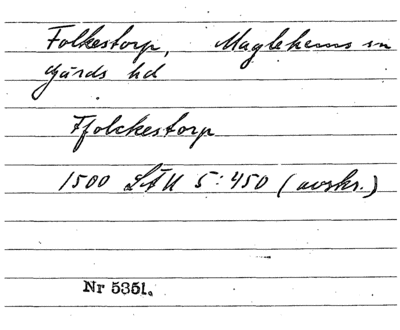 Folkestorp, Maglehems sn
Gärds hd
Ffolckestorp
1500 LÄU 5:450 (avskr.)
Nr 5351.